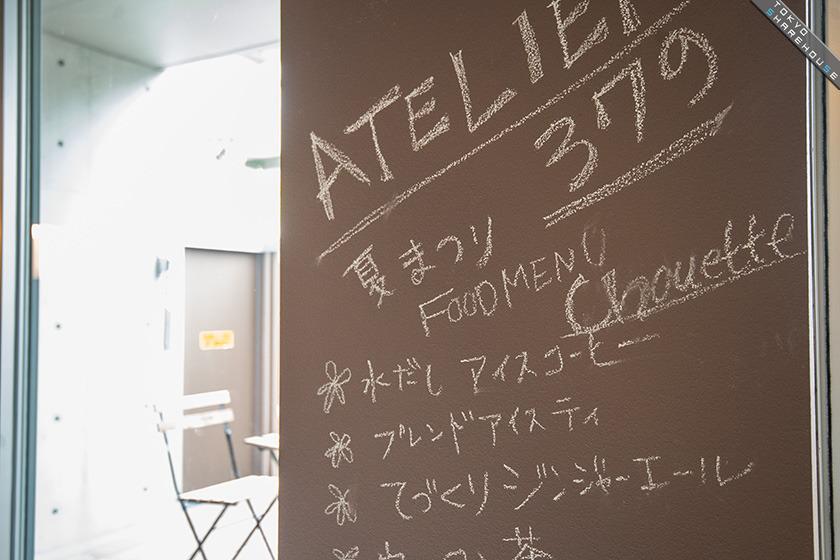 TOKYO
SHAREHOUSE
ATELIER
3790
夏まつり
FOOD MENU
Chouette
水だし アイスコーヒー
ブレンドアイスティ
てづくりジンジャーエール
茶